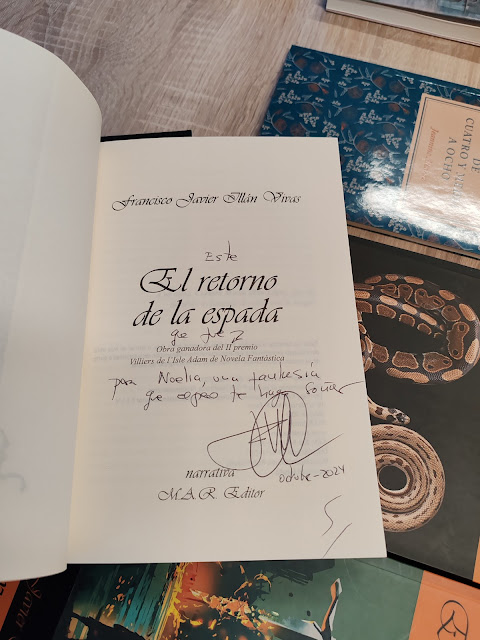 Francisco Javier Illán Vivas
Este
El retorno
de la espada
que fue
Obra ganadora del II premio
Villiers de l'Isle Adam de Novela Fantástica
para Noelia, una fantasía
que espero te haga soñar
octubre-2024
narrativa
M.A.R. Editor
DE
CUATRO Y
A OCHO